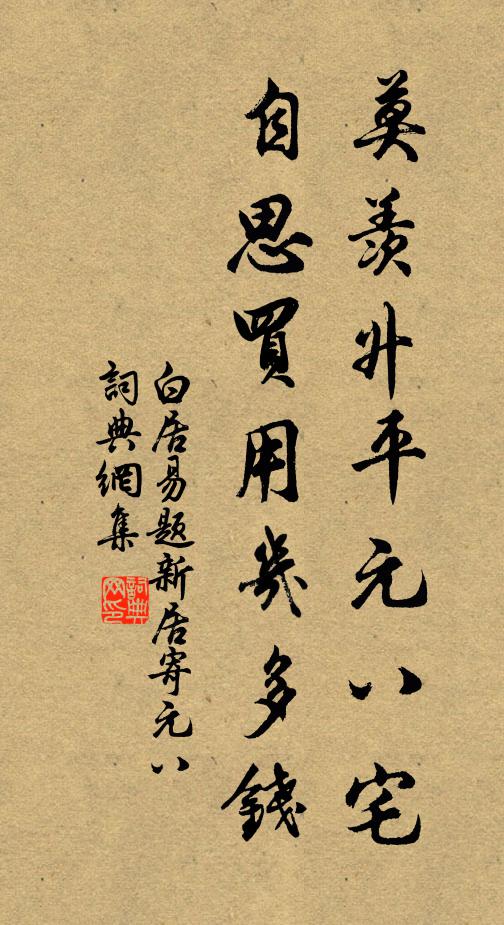 莫羨升平元八宅
自思買用幾多錢
白居易題新居寄元八
詞典網集
詞典
网印